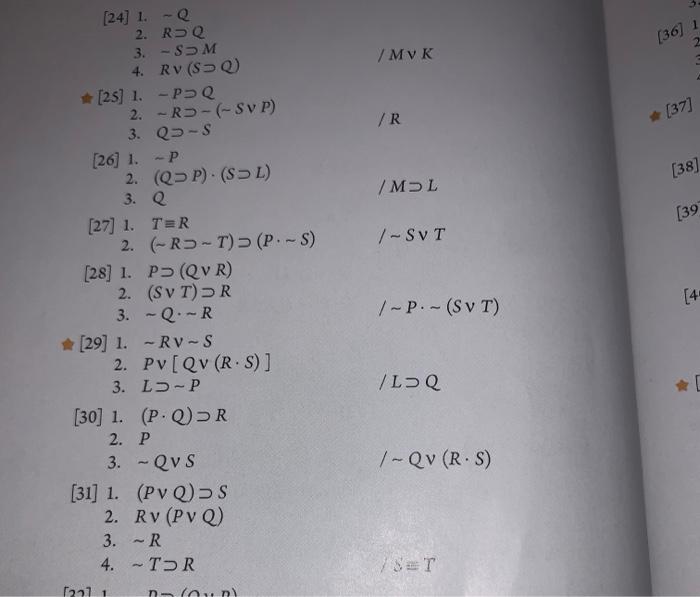 [24] 1. ~ Q
2. R ⊃ Q
3. ~ S ⊃ M
4. R v (S ⊃ Q) / M v K
[25] 1. ~ P ⊃ Q
2. ~ R ⊃ ~ (~ S v P)
3. Q ⊃ ~ S / R
[26] 1. ~ P
2. (Q ⊃ P) · (S ⊃ L)
3. Q / M ⊃ L
[27] 1. T ≡ R
2. (~ R ⊃ ~ T) ⊃ (P · ~ S) / ~ S v T
[28] 1. P ⊃ (Q v R)
2. (S v T) ⊃ R
3. ~ Q · ~ R / ~ P · ~ (S v T)
[29] 1. ~ R v ~ S
2. P v [ Q v (R · S) ]
3. L ⊃ ~ P / L ⊃ Q
[30] 1. (P · Q) ⊃ R
2. P
3. ~ Q v S / ~ Q v (R · S)
[31] 1. (P v Q) ⊃ S
2. R v (P v Q)
3. ~ R
4. ~ T ⊃ R / S ≡ T
[36] 1
2
[37]
[38]
[39